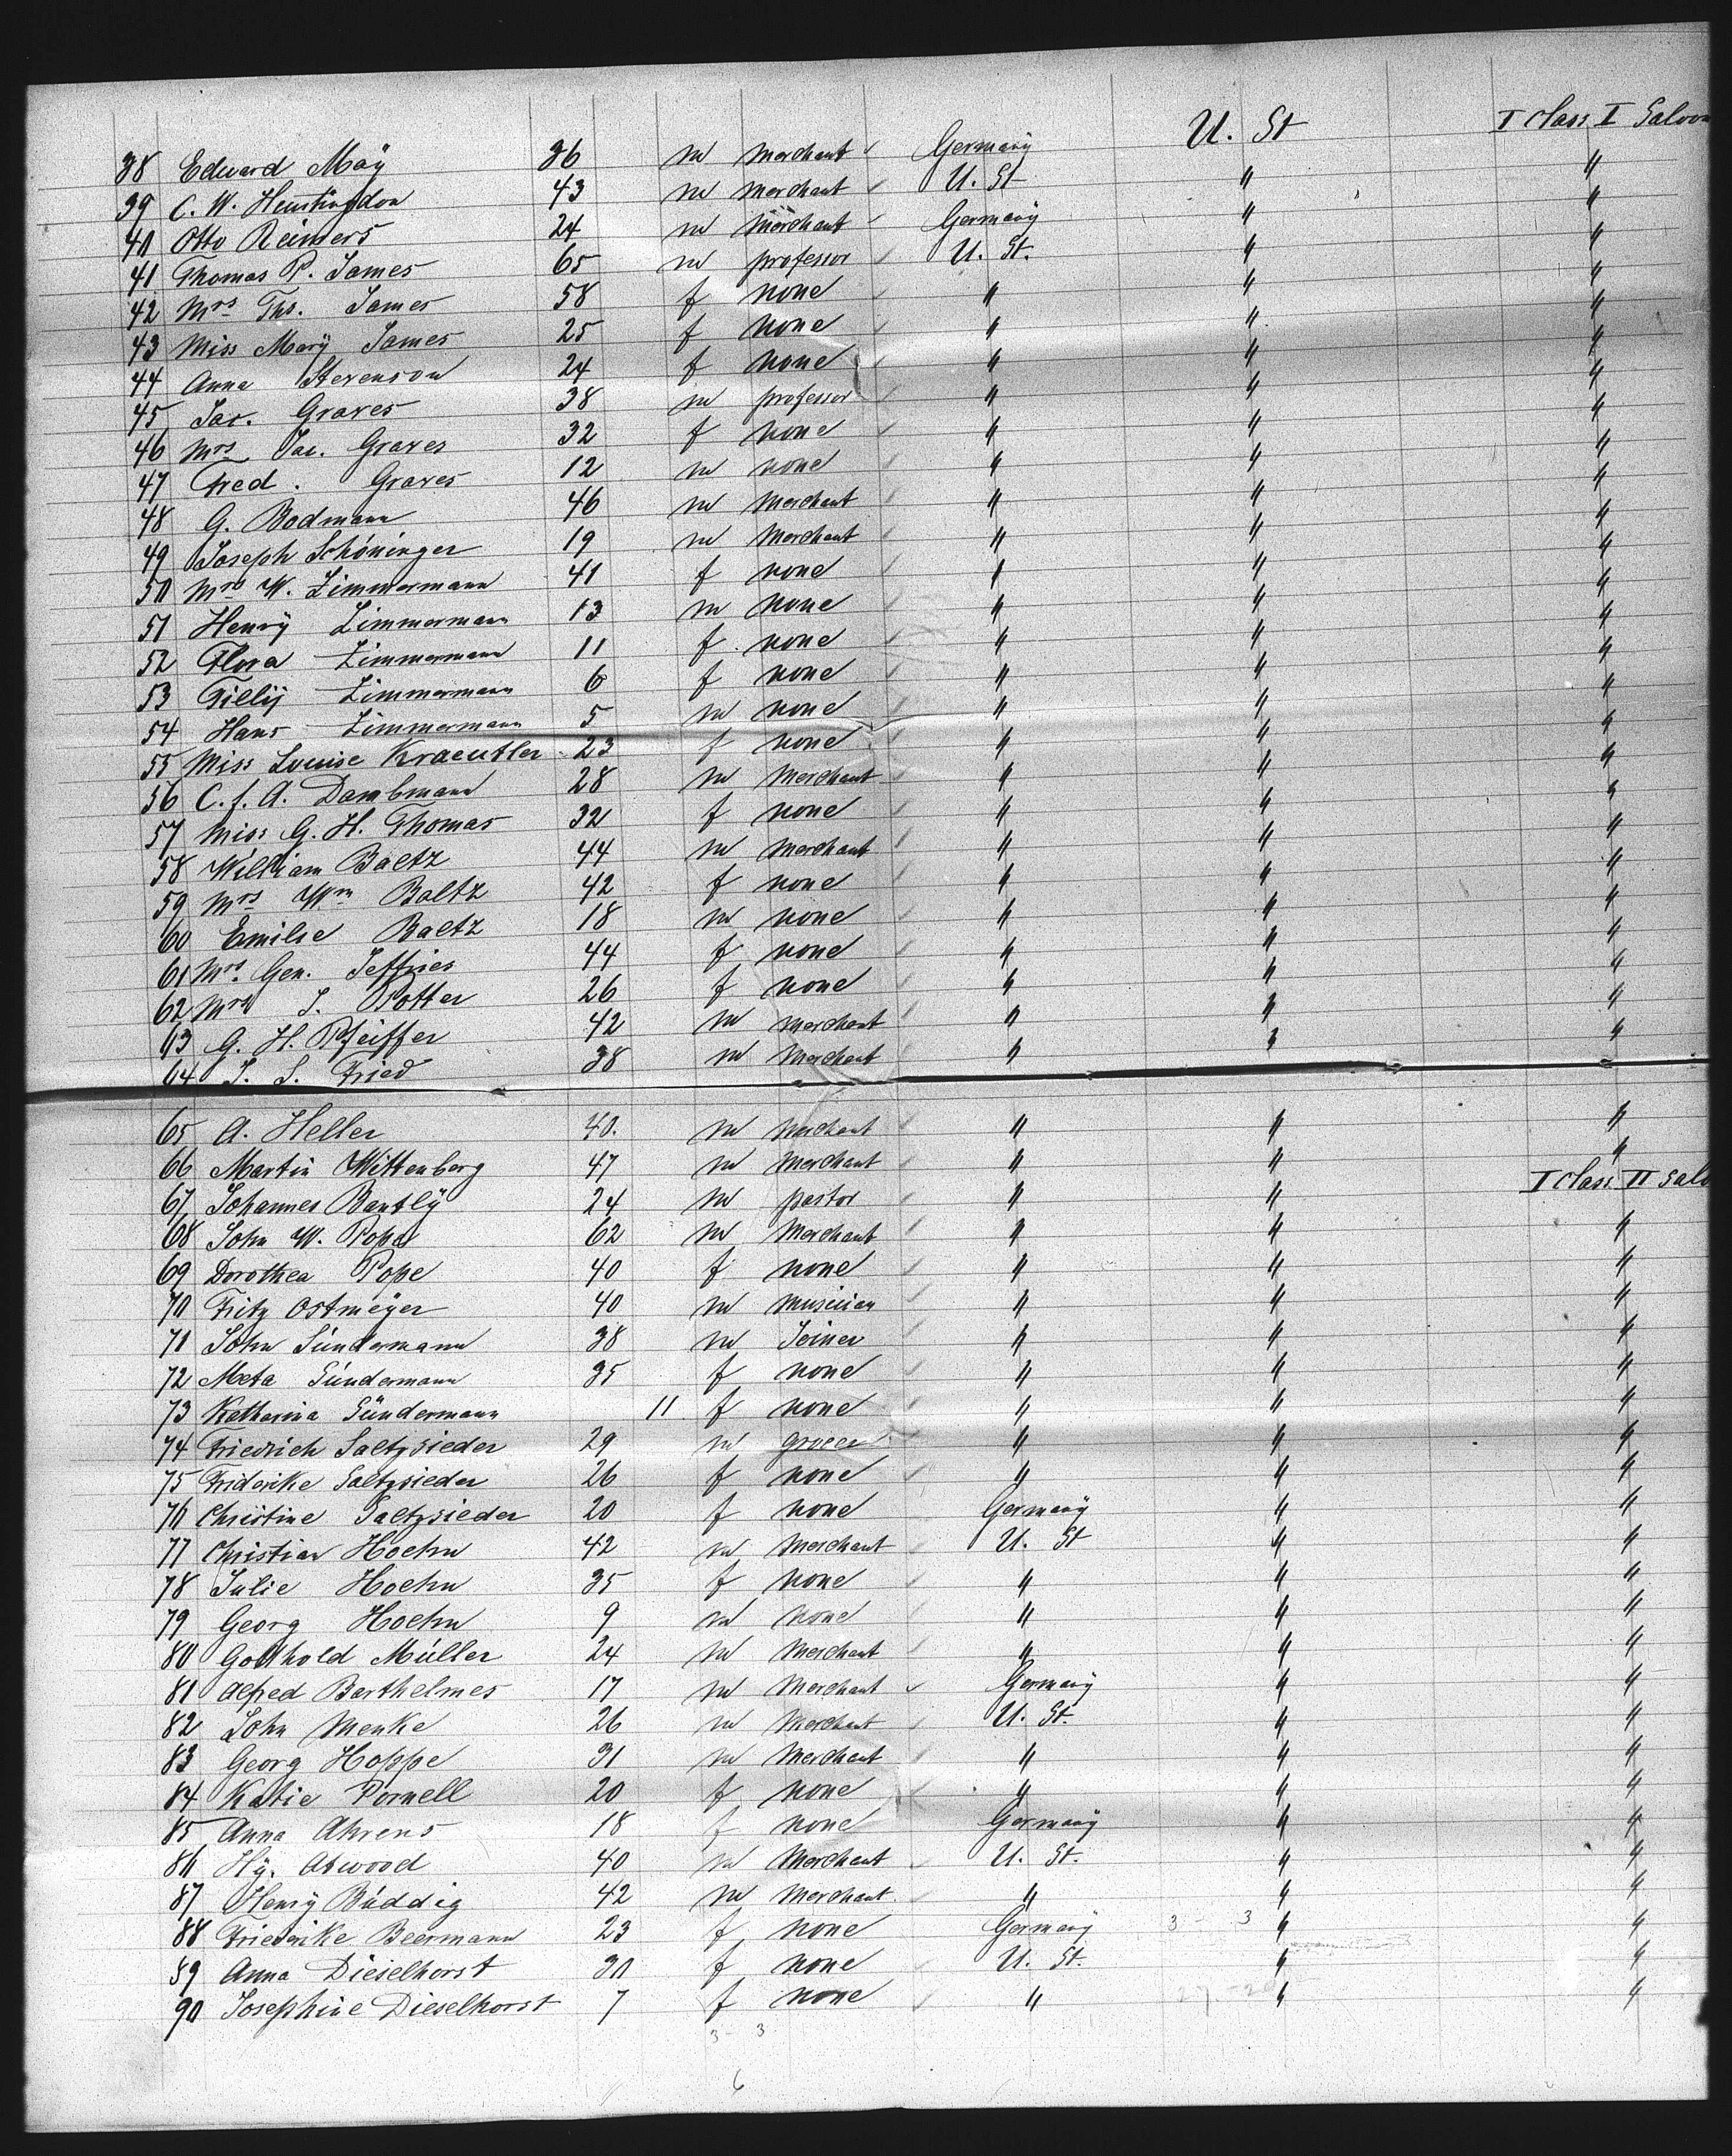 38 Edward Maÿ 36 m merchant Germanÿ U. St I class I Saloon
39 C. W. Huntingdon 43 m merchant U. St " "
40 Otto Reimers 24 m merchant Germanÿ " "
41 Thomas P. James 65 m professor U. St. " "
42 Mrs Ths. James 58 f none " " "
43 Miss Marÿ James 25 f none " " "
44 Anna Stevenson 24 f none " " "
45 Jac. Graves 38 m professor " " "
46 Mrs Jac. Graves 32 f none " " "
47 Fred. Graves 12 m none " " "
48 G. Bodmann 46 m Merchant " " "
49 Joseph Schöninger 19 m Merchant " " "
50 Mrs W. Zimmermann 41 f none " " "
51 Henrÿ Zimmermann 13 m none " " "
52 Flora Zimmermann 11 f none " " "
53 Tillÿ Zimmermann 6 f none " " "
54 Hans Zimmermann 5 m none " " "
55 Miss Louise Kraeutler 23 f none " " "
56 C. f. A. Dambmann 28 m Merchant " " "
57 Miss G. H. Thomas 32 f none " " "
58 William Baltz 44 m Merchant " " "
59 Mrs Wm Baltz 42 f none " " "
60 Emilie Baltz 18 m none " " "
61 Mrs. Gen. Jeffries 44 f none " " "
62 Mrs J. Potter 26 f none " " "
63 G. H. Pfeiffer 42 m merchant " " "
64 J. S. Fried 38 m Merchant " " "
65 A. Heller 40. m merchant " " "
66 Martin Wittenberg 47 m Merchant " " "
67 Johannes Bantlÿ 24 m pastor " " I class II Salo
68 John W. Pope 62 m Merchant " " "
69 Dorothea Pope 40 f none " " "
70 Fritz Ostmeÿer 40 m musician " " "
71 John Sündermann 38 m Joiner " " "
72 Meta Sündermann 35 f none " " "
73 Katharina Sündermann 11 f none " " "
74 Friedrich Saltzsieder 29 m grocer " " "
75 Friderike Saltzsieder 26 f none " " "
76 Christine Saltzsieder 20 f none Germanÿ " "
77 Christian Hoehn 42 m Merchant U. St " "
78 Julie Hoehn 35 f none " " "
79 Georg Hoehn 9 m none " " "
80 Gotthold Müller 24 m Merchant " " "
81 Alfred Barthelmes 17 m Merchant Germanÿ " "
82 John Menke 26 m Merchant U. St. " "
83 Georg Hoppe 31 m Merchant " " "
84 Katie Pornell 20 f none " " "
85 Anna Ahrens 18 f none Germanÿ " "
86 Hÿ. Atwood 40 m Merchant U. St. " "
87 Henrÿ Büddig 42 m Merchant " " "
88 Friederike Beermann 23 f none Germanÿ 3 - 3 " "
89 Anna Dieselhorst 30 f none U. St. " "
90 Josephine Dieselhorst 7 f none " " "
3 - 3
6